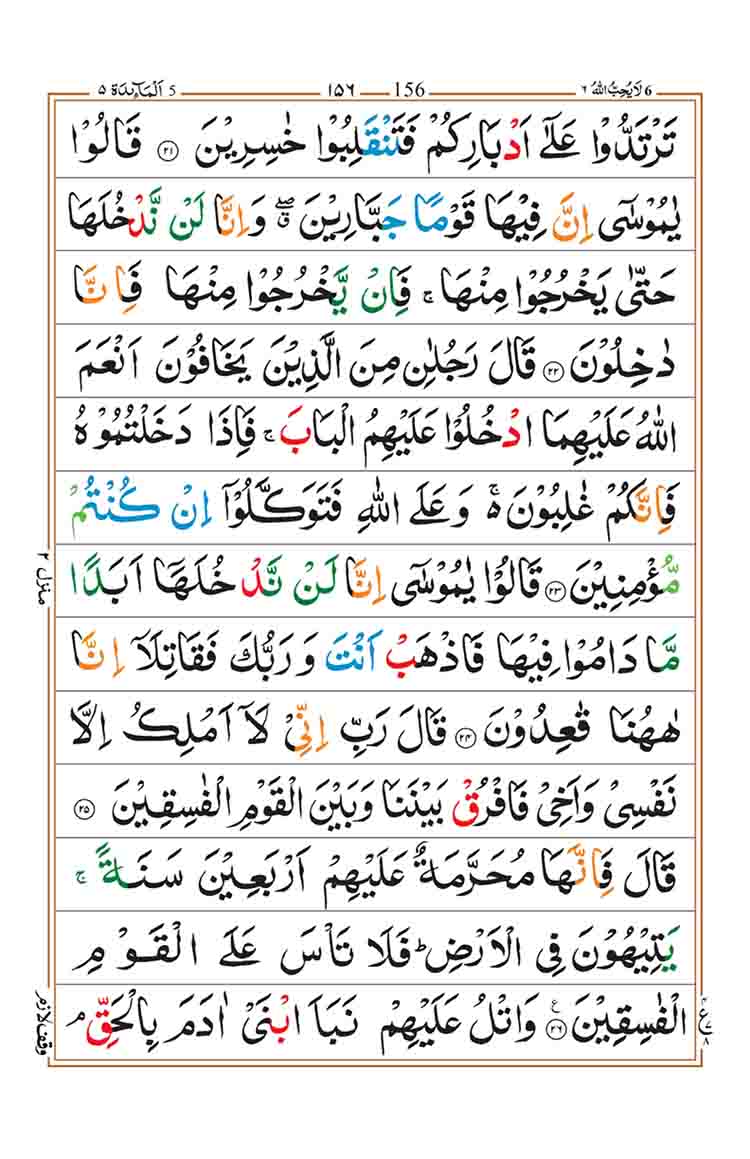 5 اَلْمَآئِدَة ۵ 156 ١٥٦ 6 لَا يُحِبُّ اللّٰهُ ٦
تَرْتَدُّوْا عَلٰٓى اَدْبَارِكُمْ فَتَنْقَلِبُوْا خٰسِرِيْنَ ﴿۲۱﴾ قَالُوْا
يٰمُوْسٰٓى اِنَّ فِيْهَا قَوْمًا جَبَّارِيْنَ ۖۗ وَاِنَّا لَنْ نَّدْخُلَهَا
حَتّٰى يَخْرُجُوْا مِنْهَا ۚ فَاِنْ يَّخْرُجُوْا مِنْهَا فَاِنَّا
دٰخِلُوْنَ ﴿۲۲﴾ قَالَ رَجُلٰنِ مِنَ الَّذِيْنَ يَخَافُوْنَ اَنْعَمَ
اللّٰهُ عَلَيْهِمَا ادْخُلُوْا عَلَيْهِمُ الْبَابَ ۚ فَاِذَا دَخَلْتُمُوْهُ
فَاِنَّكُمْ غٰلِبُوْنَ ۚ۬ وَعَلَى اللّٰهِ فَتَوَكَّلُوْٓا اِنْ كُنْتُمْ
مُّؤْمِنِيْنَ ﴿۲۳﴾ قَالُوْا يٰمُوْسٰٓى اِنَّا لَنْ نَّدْخُلَهَاۤ اَبَدًا
مَّا دَامُوْا فِيْهَا فَاذْهَبْ اَنْتَ وَرَبُّكَ فَقَاتِلَاۤ اِنَّا
هٰهُنَا قٰعِدُوْنَ ﴿۲۴﴾ قَالَ رَبِّ اِنِّيْ لَاۤ اَمْلِكُ اِلَّا
نَفْسِيْ وَاَخِيْ فَافْرُقْ بَيْنَنَا وَبَيْنَ الْقَوْمِ الْفٰسِقِيْنَ ﴿۲۵﴾
قَالَ فَاِنَّهَا مُحَرَّمَةٌ عَلَيْهِمْ اَرْبَعِيْنَ سَنَةً ۚ
يَتِيْهُوْنَ فِى الْاَرْضِ ؕ فَلَا تَاْسَ عَلَى الْقَوْمِ
الْفٰسِقِيْنَ ﴿۲۶﴾ ع وَاتْلُ عَلَيْهِمْ نَبَاَ ابْنَيْ اٰدَمَ بِالْحَقِّ ۘ
منزل ٢
وقف لازم
ع ٨